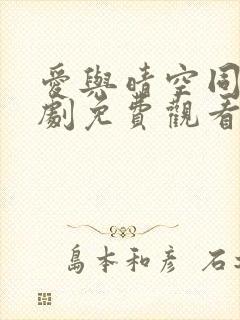 愛與晴空同
劇免費觀看
島本和彥 石